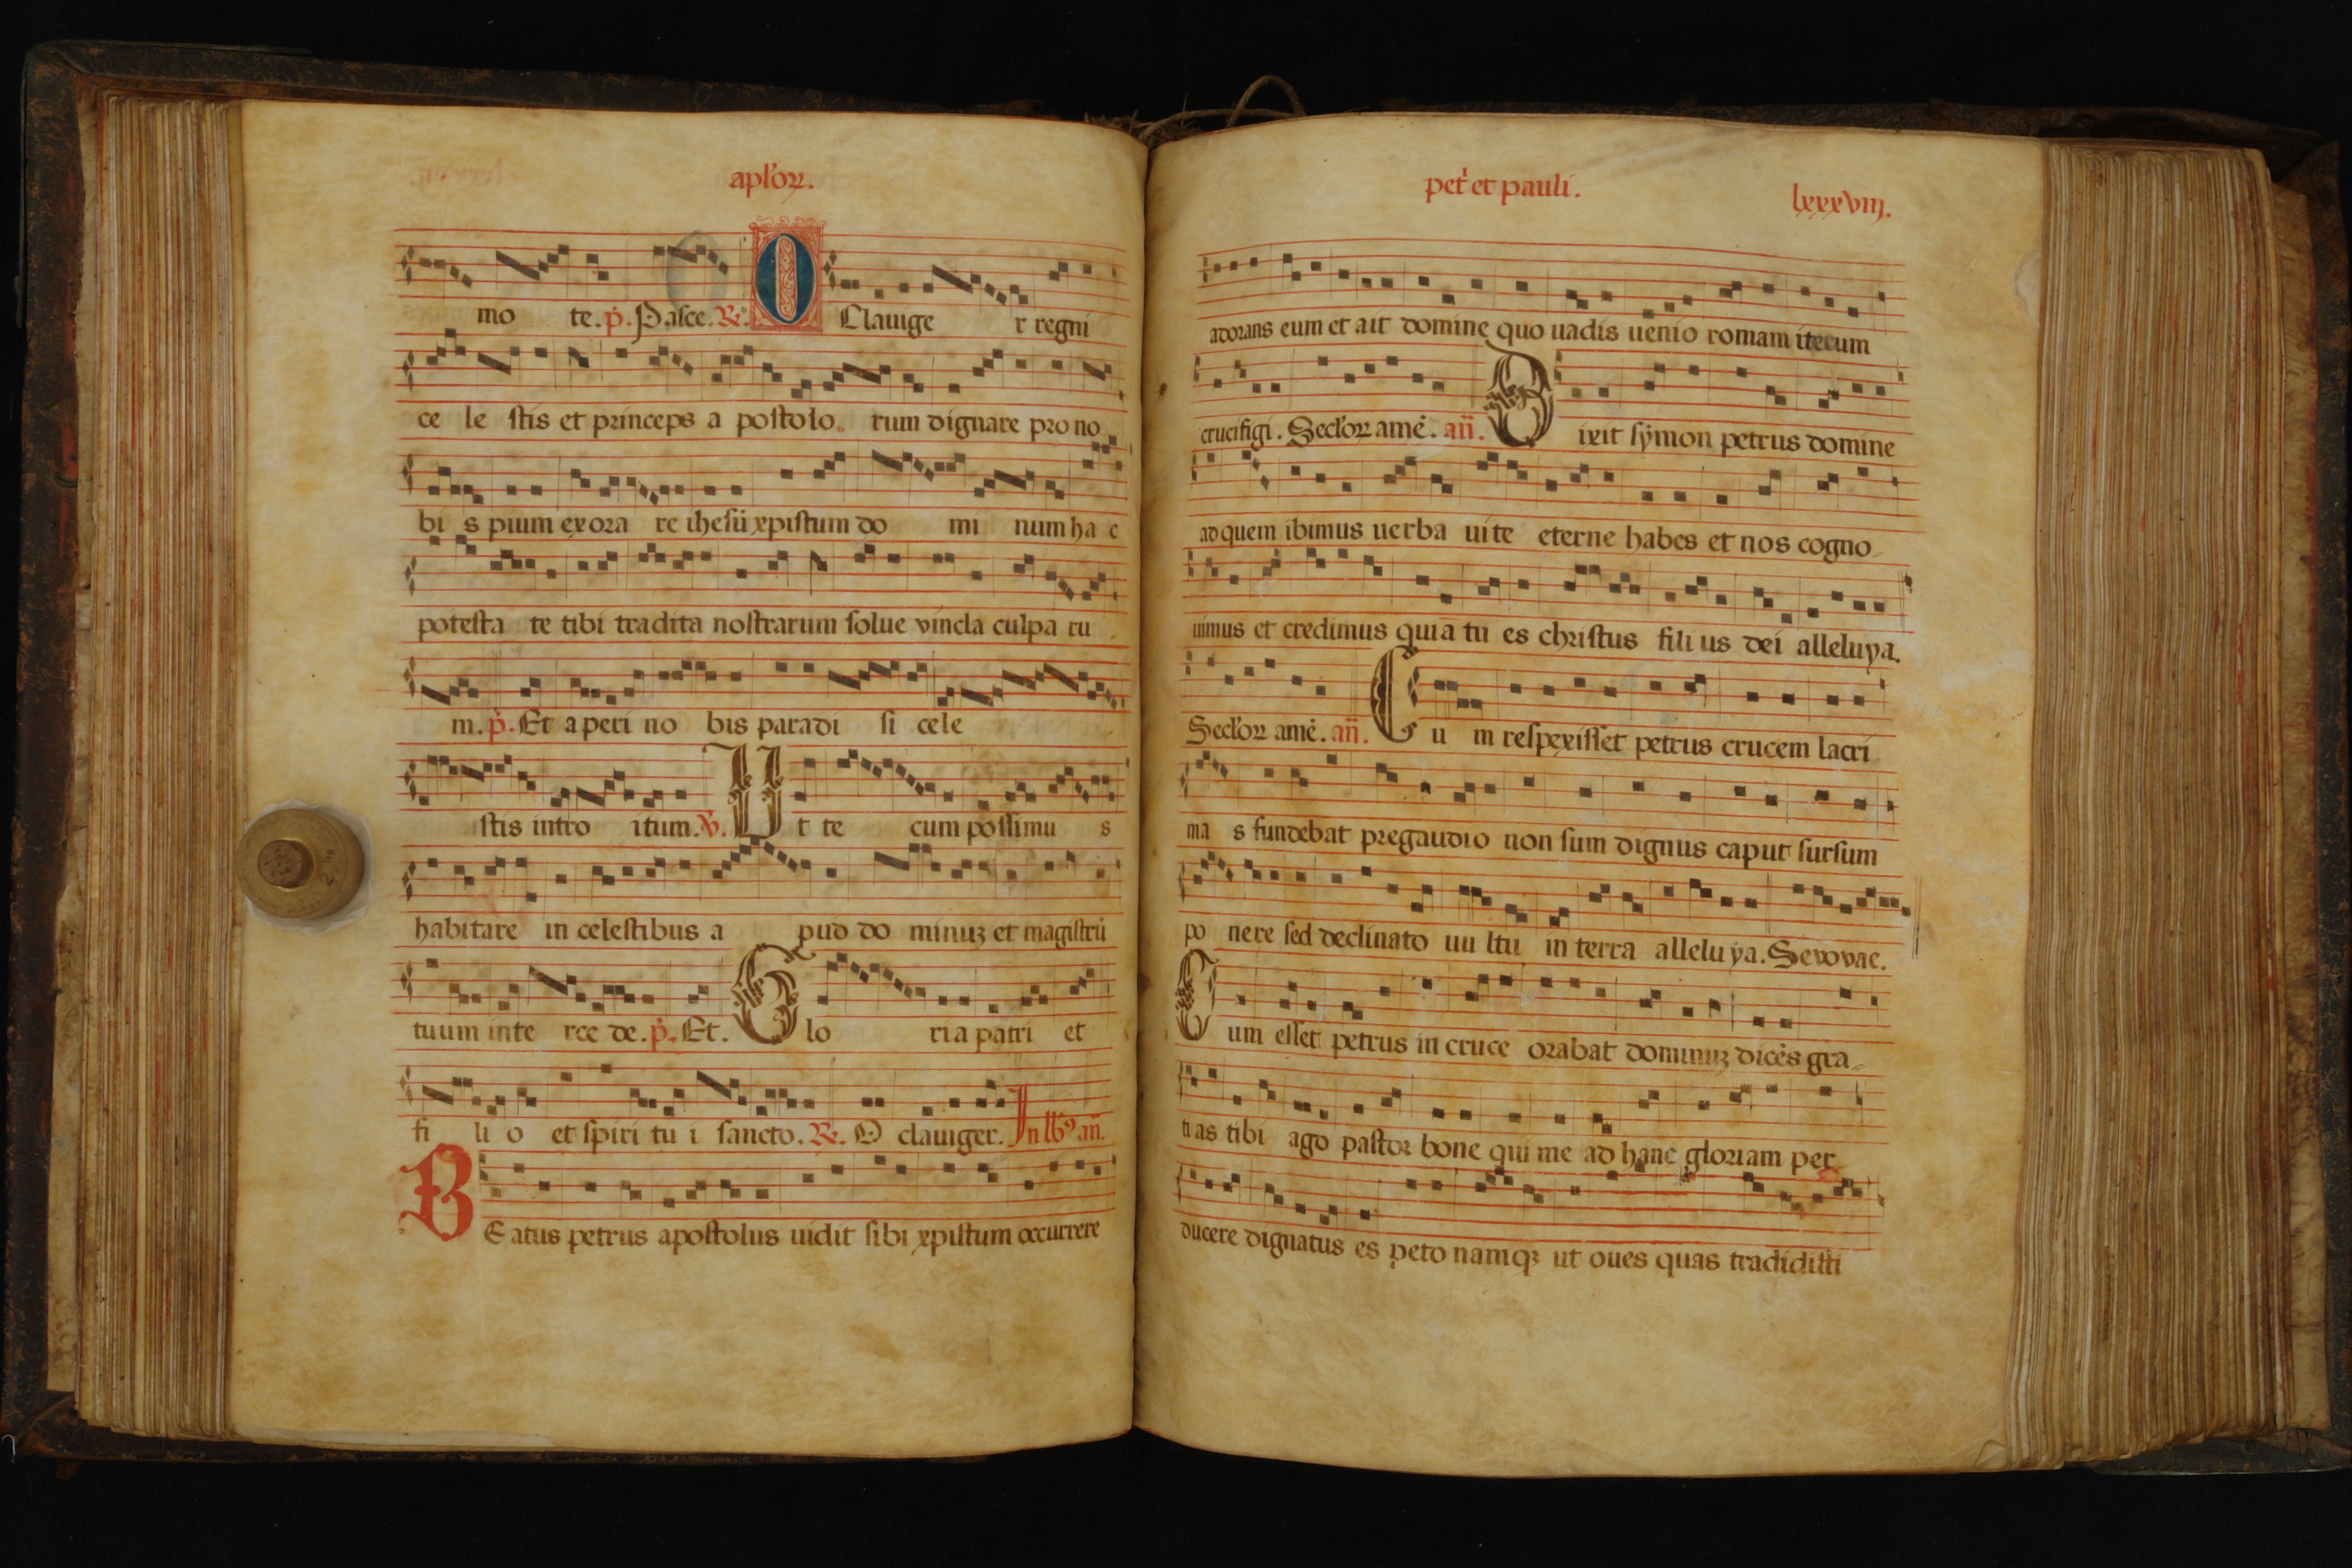 apl'oꝝ.
mo te. p̄. Pasce. ℟. O Clauige r regni
ce le stis et princeps a postolo rum dignare pro no
bi s pium exora re ihesū xpistum do mi num ha c
potesta te tibi tradita nostrarum solue vincla culpa ru
m. p̄. Et aperi no bis paradi si cele
stis intro itum. ℣. Ut te cum possimu s
habitare in celestibus a pud do minuꝫ et magistrū
tuum inte rce de. p̄. Et. Glo ria patri et
fi li o et spiri tu i sancto. ℟. O clauiger. In lbꝰ añ.
BEatus petrus apostolus uidit sibi xpistum occurrere
pet' et pauli. lxxxviij.
adorans eum et ait domine quo uadis uenio romam iterum
crucifigi. Secl'oꝝ amē. añ. Dixit sÿmon petrus domine
ad quem ibimus uerba uite eterne habes et nos cogno
uimus et credimus quia tu es christus fili us dei alleluya.
Secl'oꝝ amē. añ. Cu m respexisset petrus crucem lacri
ma s fundebat pregaudio non sum dignus caput sursum
po nere sed declinato uu ltu in terra allelu ya. Sevovae.
Cum esset petrus in cruce orabat dominuꝫ dicēs gra
ti as tibi ago pastor bone qui me ad hanc gloriam per
ducere dignatus es peto namqꝫ ut oues quas tradidisti